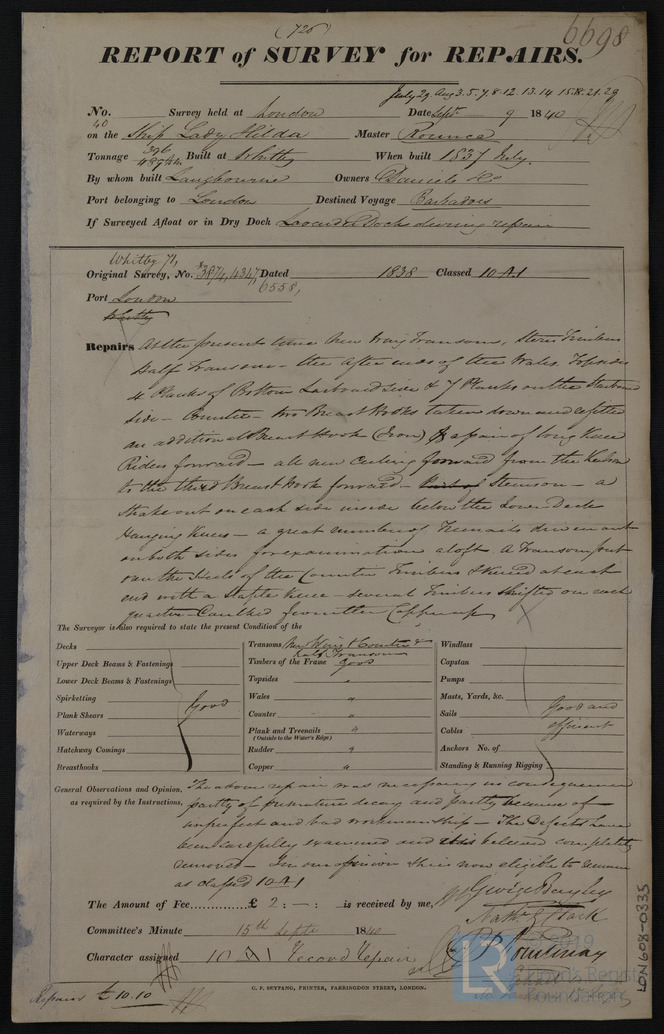 (726)
6698
REPORT of SURVEY for REPAIRS.
July 29. Aug 3. 5. 7. 8. 12. 13. 14. 15. 18. 21. 29
No. 40 Survey held at London Date Sept 9 1840
on the Ship Lady Hilda Master Rounce
Tonnage 396 Built at Whitby When built 1837 July.
By whom built Langbourne Owners Daniels & Co
Port belonging to London Destined Voyage Barbadoes
If Surveyed Afloat or in Dry Dock Lavender Dock during repair
Whitby 71,
Original Survey, No. 3874, 4347, Dated 1838 Classed 10 A1
6558,
Port London
Whitby
Repairs At the present time New Wing Transom, Stern Timbers
Half Transoms – the after ends of the Wales Topsides
4 Planks of Bottom Larboard side & 7 Planks on the Starboard
side – Counter – two Breast Hooks taken down and refitted
an additional Breast Hook (Iron) A pair of long Knee
Riders forward – all new Ceiling forward from the Keelson
to the third Breast Hook forward – Stemson – a
Strake out on each side inside below the Lower Deck
Hanging Knees – a great number of Treenails driven out
on both sides for examination aloft. A Transom put
over the Heels of the Counter Timbers & Kneed at each
end with a Staple Knee – several Timbers shifted on each
quarter – Caulked
The Surveyor is also required to state the present Condition of the
Decks
Upper Deck Beams & Fastenings
Lower Deck Beams & Fastenings
Spirketting
Plank Shears
Waterways
Hatchway Comings
Breasthooks
Good
Transoms New Wing & Counter &
Half Transoms
Timbers of the Frame Good
Topsides "
Wales "
Counter "
Plank and Treenails "
(Outside to the Water's Edge)
Rudder "
Copper "
Windlass
Capstan
Pumps
Masts, Yards, &c.
Sails
Cables
Anchors No. of
Standing & Running Rigging
Good and
efficient
General Observations and Opinion, The above repair was necessary in consequence
as required by the Instructions, partly of premature decay and partly because of
imperfect and bad workmanship – The Defects have
been carefully examined and believed completely
removed – In our opinion she is now eligible to remain
as classed 10 A1
The Amount of Fee............. £ 2 : – : is received by me, George Bayley
Nath.
Committee's Minute 15th Septr 1840
Character assigned 10 A1 Record Repair
Repairs £10.10
G. F. SEYFANG, PRINTER, FARRINGDON STREET, LONDON.
LR
© 2019
Lloyd's Register
Foundation
LON608-0335